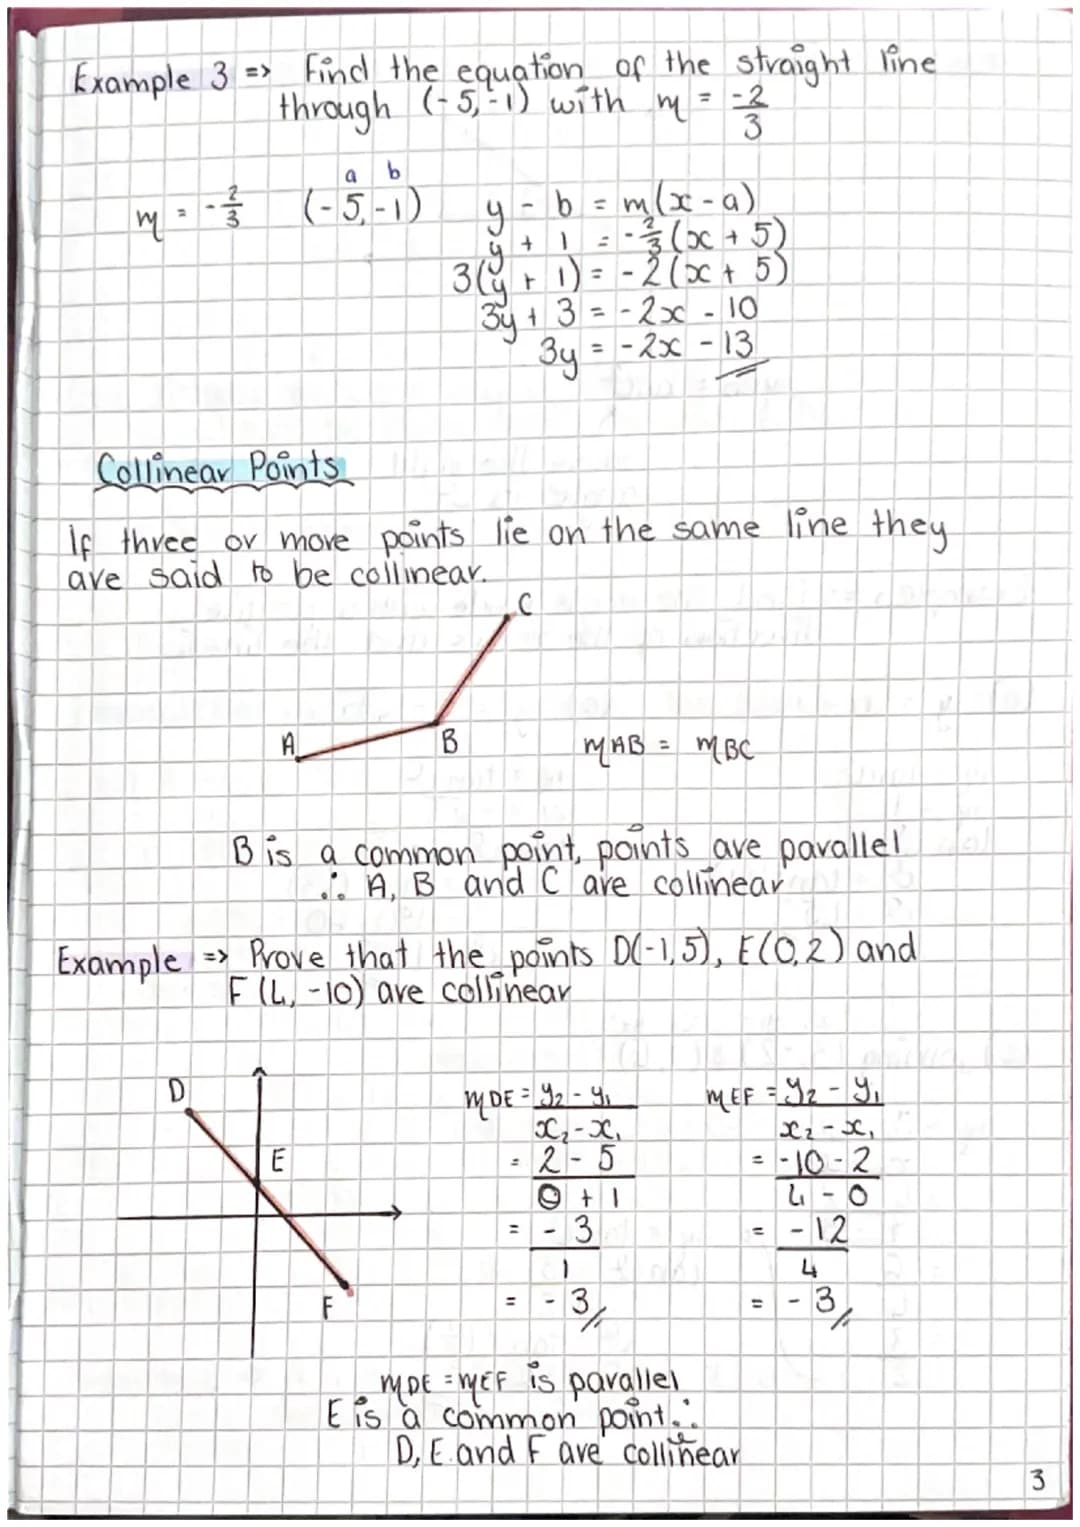 Example 3 => Find the equation of the straight line
through (-5,-1) with m = -2/3
m = -2/3 (-5,-1) y - b = m(x - a)
a b
y + 1 = -2/3(x + 5)
3(y + 1) = -2(x + 5)
3y + 3 = -2x - 10
3y = -2x - 13
Collinear Points
If three or more points lie on the same line they
are said to be collinear.
C
A B mAB = mBC
B is a common point, points are parallel
∴ A, B and C are collinear
Example => Prove that the points D(-1,5), E(0,2) and
F(4,-10) are collinear
D mDE = y₂ - y₁ / x₂ - x₁ mEF = y₂ - y₁ / x₂ - x₁
E = 2 - 5 / 0 + 1 = -10 - 2 / 4 - 0
= -3 / 1 = -12 / 4
F = -3 = -3
mDE = mEF is parallel
E is a common point ∴
D, E and F are collinear
3